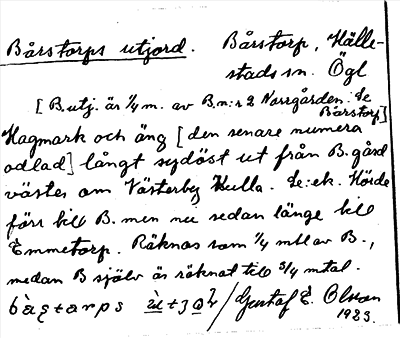 Bårstorps utjord. Bårstorp, Hälle-
stads sn. Ögl
[B.utj. är 1/4 m. av B.n:r 2 Norrgården. Se
Bårstorp]
Hagmark och äng [den senare numera
odlad] långt sydöst ut från B.gård
väster om Västerby Kulla. Se: ek. Hörde
förr till B. men nu sedan länge till
Emmetorp. Räknas som 1/4 mtl av B.,
medan B själv är räknat till 3/4 mtal.
Gustaf E. Olsson
1923.